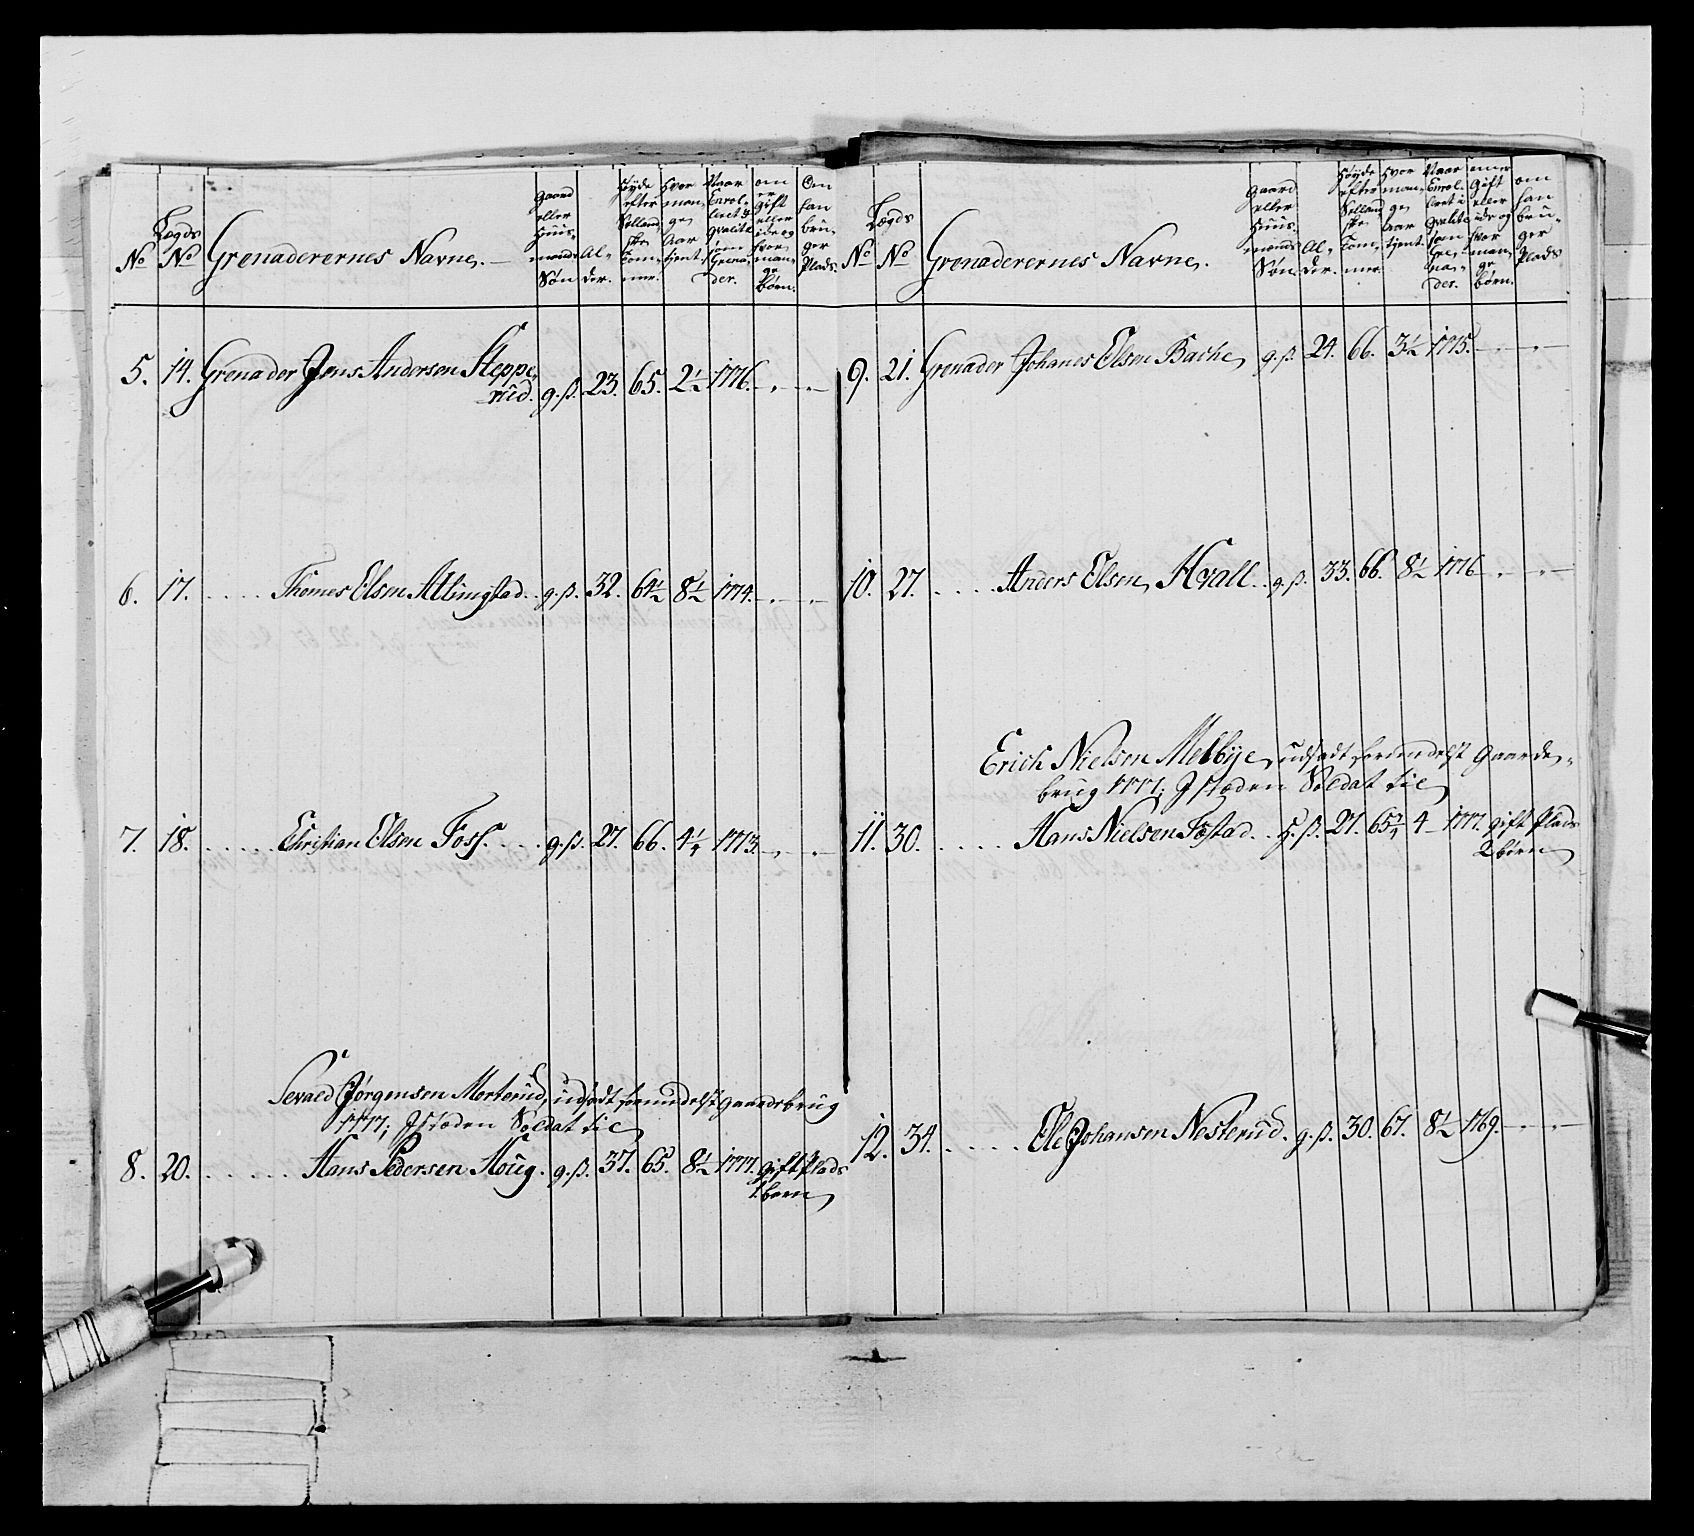 No
Lægds No
Grenaderernes Navne.
Gaard eller Huus-mands Søn
Al-der.
Høyde efter Sellandske Tom-mer.
Hvor man-ge Aar tient
Naar Enrol-leret i qvalite som Grena-der.
om er gift eller ide og hvor man-ge børn.
Om han bru-ger Plads.
5. 14. Grenader Jens Andersen Steppe-
rud. g.ß. 23. 65. 2½ 1776. — . —
6. 17. . . . . Thomes Olsen Allingstad. g.ß. 32. 64½ 8½ 1774. — . —
7. 18. . . . . . Christian Olsen Foss. . . . g.ß. 27. 66. 4¼ 1773. — . —
Sevald Jørgensen Morterud, udsadt formedelst gaardsbrug
1777; Jstæden Soldat tie
8. 20. . . . . . Hans Pedersen Houg. g.ß. 37. 65. 8½ 1777. gift Plads
1 børn
No
Lægds No
Grenaderernes Navne.
Gaard eller Huus-mands Søn
Al-der.
Høyde efter Sellandske Tom-mer.
Hvor man-ge aar tient.
Naar Enrol-leret i qvalite som Gre-na-der.
gift eller ide og hvor man-ge børn.
om han bru-ger Plads
9. 21. Grenader Johanes Olsen Bache g.ß. 24. 66. 3½ 1775. — . —
10. 27. . . . . Anders Olsen Hvall . g.ß. 33. 66. 8½ 1776 — . —
Erich Nielsen Melbye, udsadt formedelst Gaards-
brug 1777; Jstæden Soldat tie
11. 30. . . . . Hans Nielsen Fostad. . H.ß. 27. 65¾ 4 — 1777. gift Plads
2 børn
12. 34. . . . . . Ole Johansen Nesterud. g.ß. 30. 67. 8½ 1769. — . —